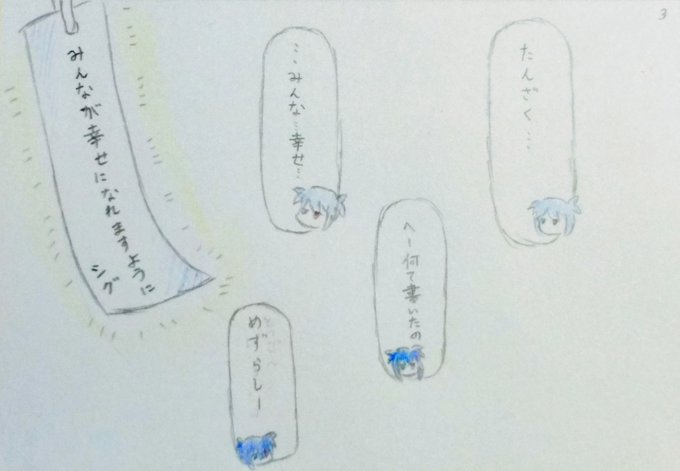 3
たんざく…
へー何て書いたの
…みんな…幸せ…
めずらしー
みんなが幸せになれますように
シグ